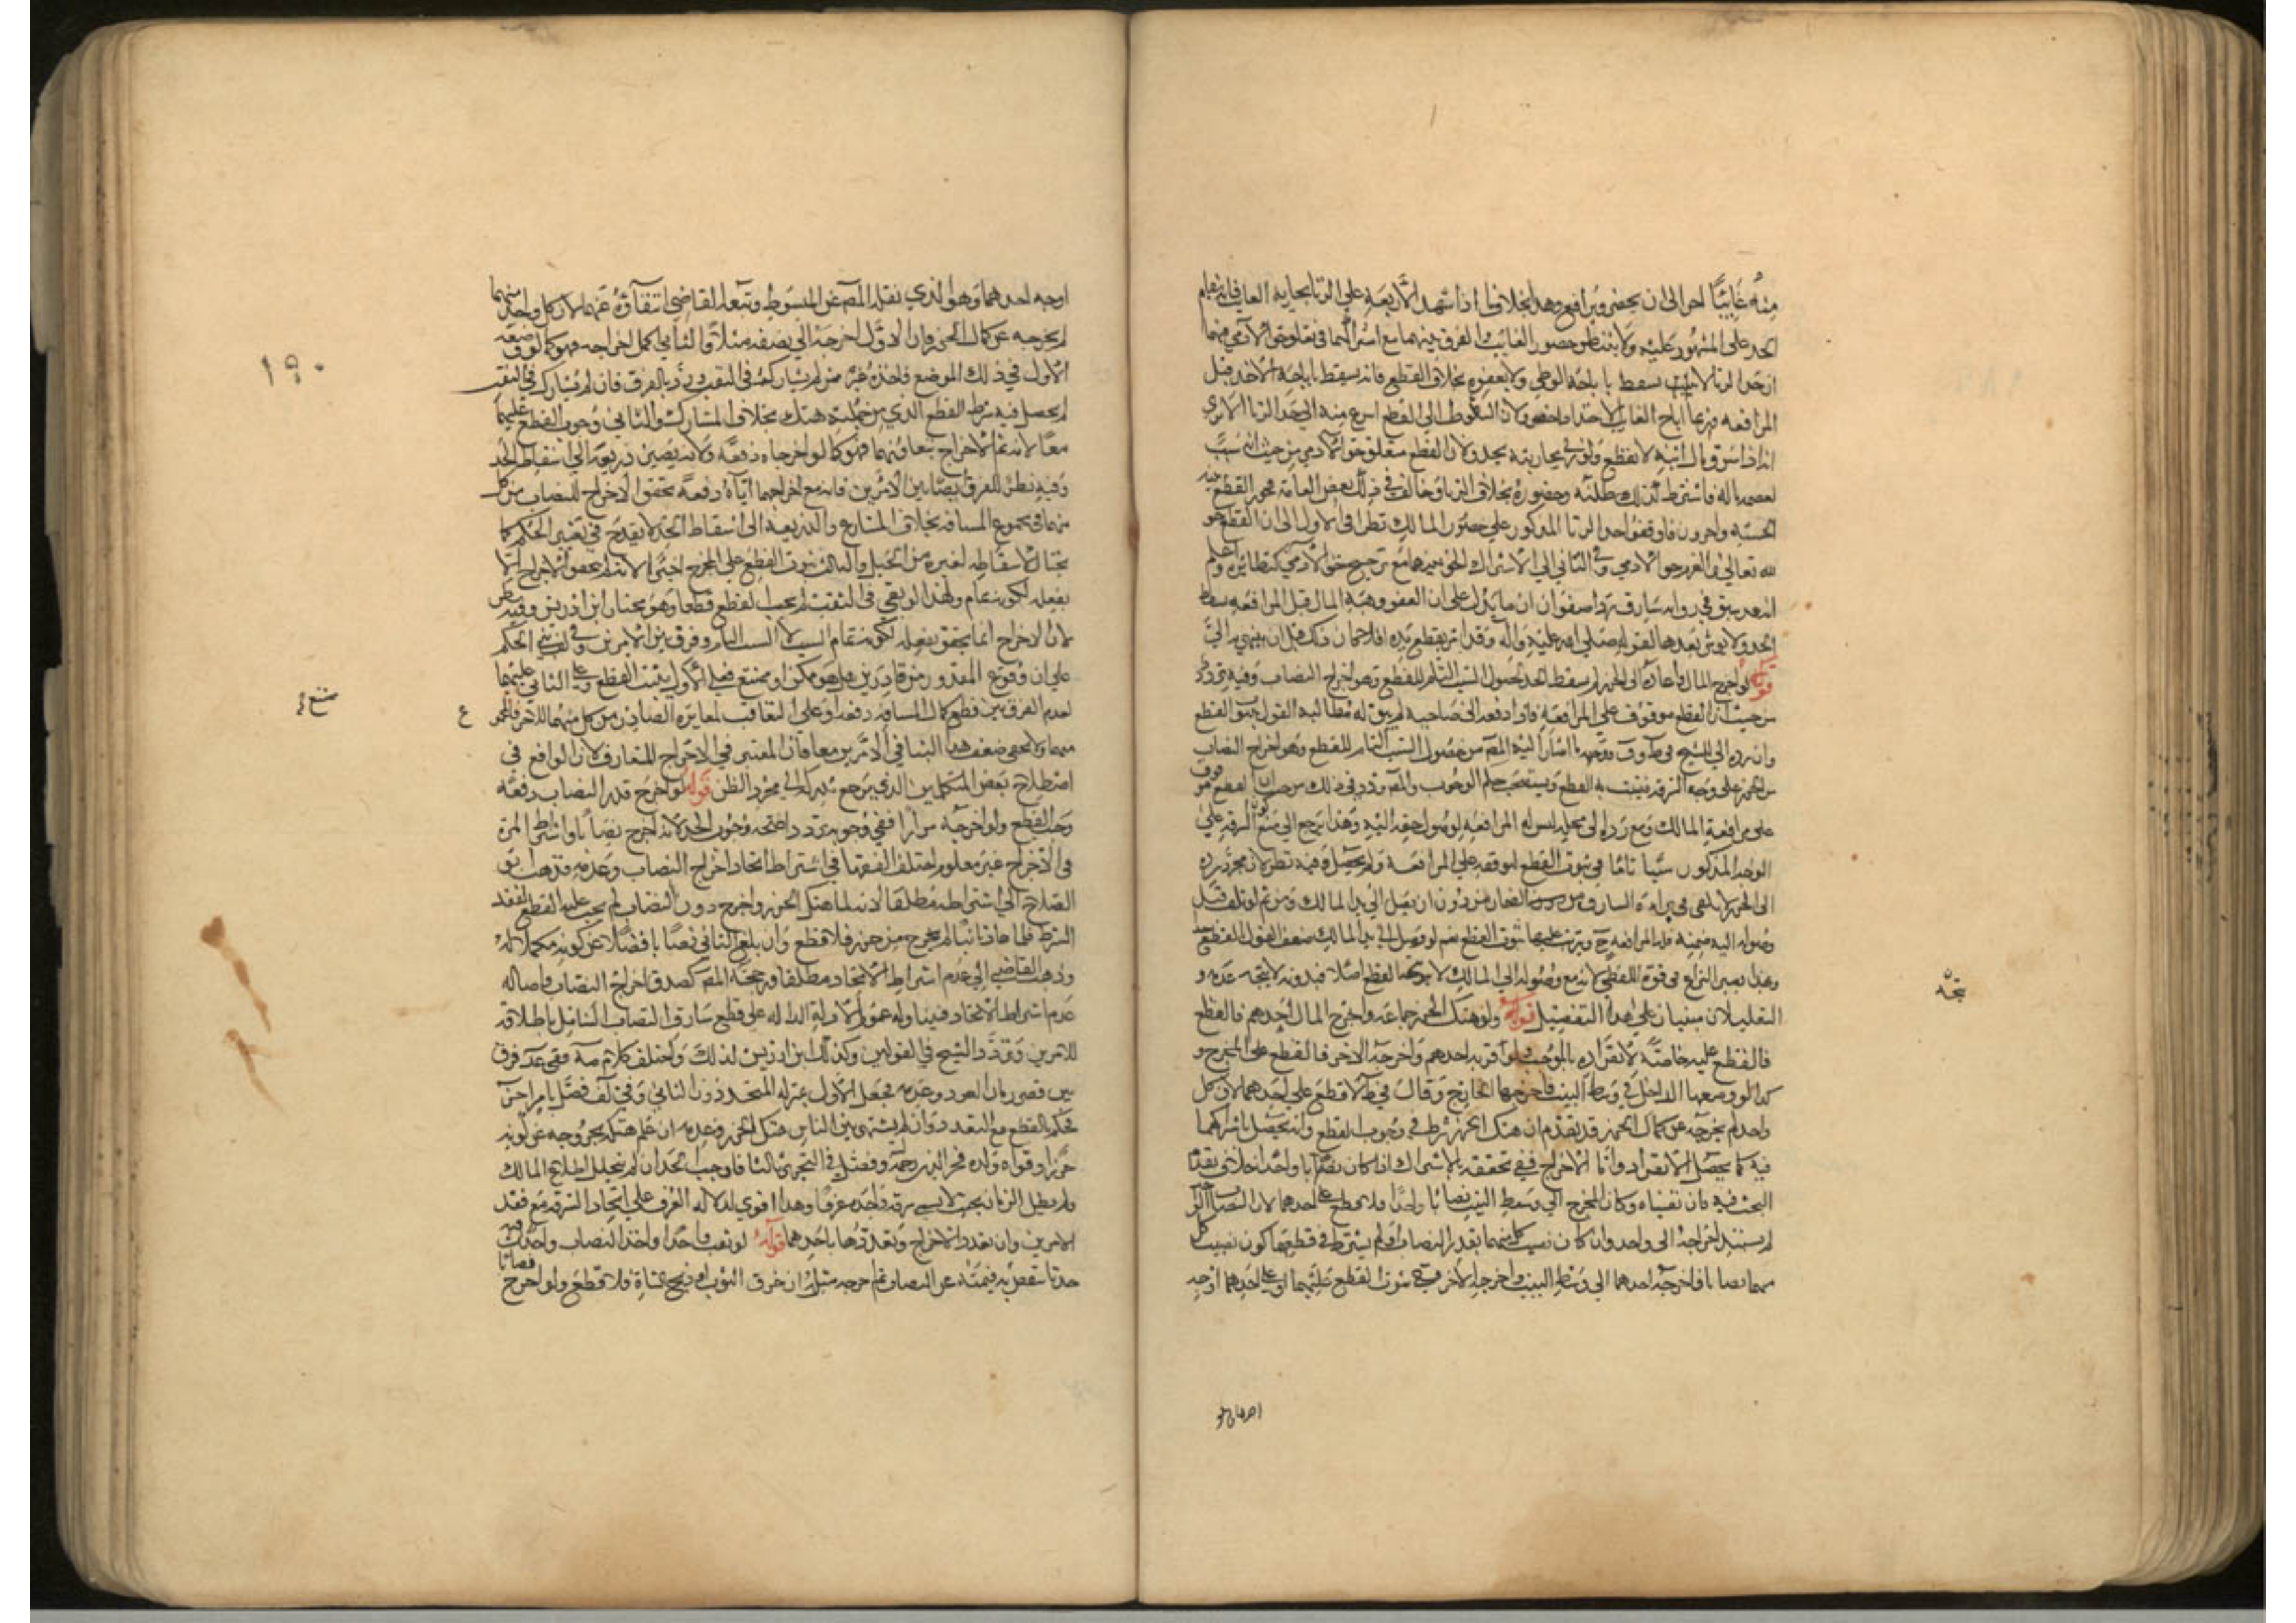 منه غائبا اخر الى ان يحضر ويرافع وهذا بخلاف ما اذا شهد الاربعة على الزنا بجارية الغائب فانه يقام
الحد على المشهور عليه ولا ينتظر حضور الغائب والفرق بينهما مع اشتراكهما في تعلق حق الادمي منهما
ان حد الزنا لا يسقط باباحة الوطي ولا بعفوه بخلاف القطع فانه يسقط باباحة الاخذ قبل
المرافعه فربما اباح الغائب الاخذ او احضوره ولان السقوط الى القطع اسرع منه الى حد الزنا الا ترى
انه اذا سرق مال ابنه لا يقطع ولو زنى بجاريته يحد ولان القطع متعلق حق الادمي من حيث انه سبب
لعصمه ماله فاشترط لذلك طلبه وحضوره بخلاف الزنا وخالف في ذلك بعض العامة فجوز القطع
الحسبه واخرون فاوقفوا حد الزنا المذكور على حضور المالك نظرا في الاول الى ان القطع هو
لله تعالى والغرم حق الادمي وفي الثاني الى الاشتراك الحق بينهما مع ترجيح حق الادمي كنظائره واعلم
انه قد سبق في رواية سارق رداء صفوان ان ما يدل على ان العفو وهبة المال قبل المرافعه يسقط
الحد ولا يؤثر بعدها لقوله صلى الله عليه واله وقد امر بقطع يده افلا كان ذلك قبل ان ينتهي به الي
قوله لو اخرج المال واعاده الى الحرز لم يسقط الحد لحصول السبب التام للقطع وهو اخراج النصاب وفيه تردد
من حيث ان القطع موقوف على المرافعة فاذا دفعه الى صاحبه لم يبق له مطالبة القول بثبوت القطع
وان رده الى الشيخ في ط وف ووجهه ما اشار اليه المص من حصول السبب التام للقطع وهو اخراج النصاب
من الحرز على وجه السرقة فيثبت به القطع ويستصحب حكم الوجوب والمص تردد في ذلك من حيث ان القطع موقوف
على مرافعة المالك ومع رده الى محله ليس له المرافعه لوصول حقه اليه وهذا يرجع الى منع كون السرقه على
الوجه المذكور سببا تاما في ثبوت القطع لتوقفه على المرافعة ولم يحصل وفيه نظر لان مجرد رده
الى الحرز لا يكفي في براءة السارق من الضمان من دون ان يصل الى يد المالك ومن ثم لو تلف قبل
وصوله اليه ضمنه فله المرافعه ح ويترتب عليها ثبوت القطع نعم لو وصل الى يد المالك ضعف القول بالقطع
وهذا يصير النزاع في قوة اللفظي لانه مع وصوله الى المالك لا يتجه القطع اصلا وبدونه لا يتجه عدمه و
التعليلان مبنيان على هذا التفصيل قوله ولو هتك الحرز جماعه واخرج المال احدهم فالقطع
فالقطع عليه خاصة لانفراده بالموجب ولو قربه احدهم واخرجه الاخر فالقطع على المخرج و
كذا لو وضعها الداخل في وسط البيت فاخرجها الخارج وقال في ط لا قطع على احدهما لان كل
واحد لم يخرجه عن كمال الحرز قد تقدم ان هتك الحرز شرط في وجوب القطع وانه يحصل باشتراكهما
فيه كما يحصل بالانفراد وانما الاخراج ففي تحققه بالاشتراك اذا كان نصابا واحدا خلاف تقدم
البحث فيه فان نفيناه وكان المخرج الى وسط البيت نصابا واحدا فلا قطع على احدهما لان النصاب
لم يستند اخراجه الى واحد وان كان نصيب كل منهما بقدر النصاب او لم يشترط في قطعهما كون نصيب كل
منهما نصابا فاخرجه احدهما الى وسط البيت واخرجه الاخر ففي ثبوت القطع عليهما او على احدهما اوجه
يتجه
احدهما وهو
اوجه احدهما وهو الذي نقله المص عن المبسوط وتبعه القاضي انتفاؤه عنهما لان كل واحد منهما
لم يخرجه عن كمال الحرز فان الاول اخرجه الى نصفه مثلا والثاني كمل اخراجه فهو كما لو وضعه
الاول في ذلك الموضع فاخذه غيره ممن لم يشاركه في النقب ورد بالفرق فان لم يشارك في النقب
لم يحصل فيه شرط القطع الذي من جملته هتك بخلاف المشارك والثاني وجوب القطع عليهما
معا لانه تم الاخراج بتعاونهما فهو كما لو اخرجاه دفعة ولانه يصير ذريعة الى اسقاط الحد
وفيه نظر للفرق بين الامرين فانه مع اخراجهما اياه دفعة يتحقق الاخراج للنصاب من كل
منهما في مجموع المسافه بخلاف المتنازع والذريعة الى اسقاط الحد لا يقدح في تغيير الحكم كما
يحتال لاسقاطه لغيره من الحيل والثالث ثبوت القطع على المخرج اخيرا لانه تم الاخراج
بفعله لكونه تمام ولهذا لو بقي في النقب لم يجب القطع قطعا وهو مختار ابن ادريس وفيه نظر
لان الاخراج انما يتحقق بفعله لكونه تمام السبب لا السبب التام وفرق بين الامرين وفي لف بنى الحكم
على ان وقوع المقدور من قادرين هل هو ممكن او ممتنع فعلى الاول يثبت القطع وعلى الثاني عليهما
لعدم الفرق بين قطع كمال المسافه دفعة او على التعاقب لمغايرة الصادر من كل منهما للاخر
منهما ولا يخفى ضعف هذا البنا في الامرين معا فان المعتبر في الاخراج المتعارف لان الواقع في
اصطلاح بعض المتكلمين الذي يرجع تدبره الى مجرد الظن قوله لو اخرج قدر النصاب دفعة
وجب القطع ولو اخرجه مرارا ففي وجوبه تردد اصحه وجوب الحد لانه اخرج نصابا واشتراط المرة
في الاخراج غير معلوم اختلف الفقها في اشتراط اتحاد اخراج النصاب وعدمه فذهب ابو
الصلاح الى اشتراطه مطلقا لانه لما هتك الحرز واخرج دون النصاب لم يجب عليه القطع لفقد
الشرط فلما عاد ثانيا لم يخرج من حرز فلا قطع وان بلغ الثاني نصابا فضلا عن كونه مكملا له
وذهب القاضي الى عدم اشتراط الاتحاد مطلقا ورجحه المص لصدق اخراج النصاب واصاله
عدم اشتراط الاتحاد فيتناوله عموم الادلة الداله على قطع سارق النصاب الشامل باطلاقه
للامرين وتردد الشيخ في القولين وكذلك ابن ادريس لذلك واختلف كلام مه ففي عد فرق
بين قصر زمان العود وعدمه فجعل الاول بمنزله المتحد دون الثاني وفي لف فصل بامر اخر
فحكم بالقطع مع التعدد وان لم يشتهر بين الناس هتك الحرز وعدمه ان علم هتكه لخروجه عن كونه
حرزا وقواه ولده فخر الدين رحمه وفصل في التحرير ثالثا فاوجب الحد ان لم يتخلل اطلاع المالك
ولم يطل الزمان بحيث لا يسمى سرقة واحدة عرفا وهذا اقوى لدلاله العرف على اتحاد السرقة مع فقد
الامرين وان تعدد الاخراج وتعددها باحدهما قوله لو نقب واخذ واخذ النصاب واحدث
حدثا تنقص به قيمته عن النصاب ثم اخرجه مثل ان خرق الثوب او ذبح الشاة فلا قطع ولو اخرج
١٩٠
ممتنع
ع